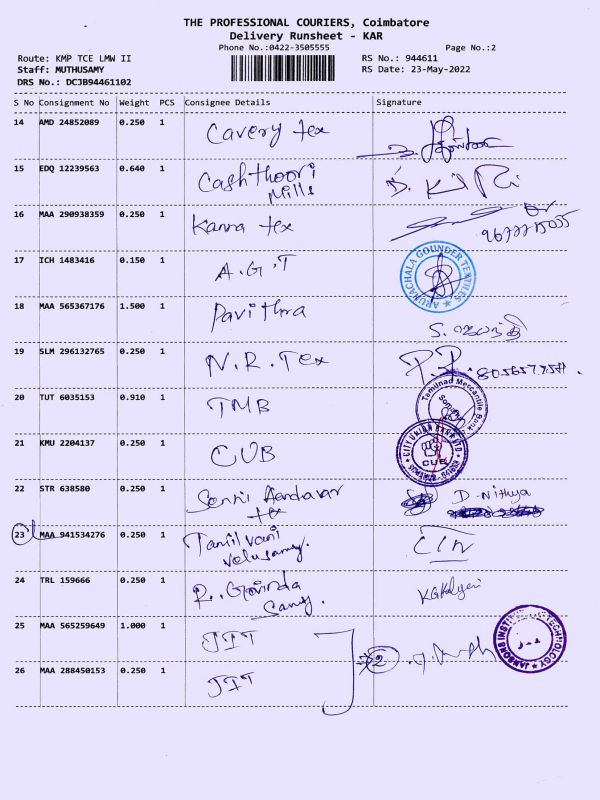 THE PROFESSIONAL COURIERS, Coimbatore
Delivery Runsheet - KAR
Phone No.:0422-3505555
Page No.:2
Route: KMP TCE LMW II
RS No.: 944611
Staff: MUTHUSAMY
RS Date: 23-May-2022
DRS No.: DCJB94461102
S No Consignment No Weight PCS Consignee Details Signature
14 AMD 24852089 0.250 1 Cavery tex
15 EDQ 12239563 0.640 1 Cashthoori
Mills
16 MAA 290938359 0.250 1 Kanna tex
17 ICH 1483416 0.150 1 A.G.T ARUNACHALA GOUNDER TEXTILES
18 MAA 565367176 1.500 1 Pavithra S. ஜெயந்தி
19 SLM 296132765 0.250 1 N.R. Tex
20 TUT 6035153 0.910 1 TMB Tamilnad Mercantile Bank
21 KMU 2204137 0.250 1 CUB CITY UNION BANK LTD CUB
22 STR 638580 0.250 1 Senthil Aandavar D. Nithya
tex
23 MAA 941534276 0.250 1 Tamilvani
Velusamy.
24 TRL 159666 0.250 1 R. Govinda
Samy.
25 MAA 565259649 1.000 1 JIT JANSONS INSTITUTE OF TECHNOLOGY
26 MAA 288450153 0.250 1 JIT 2